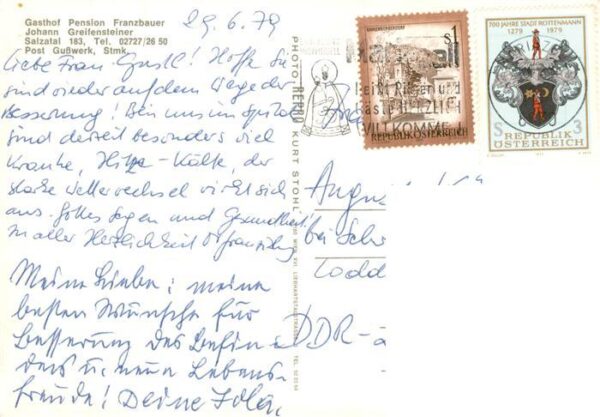 Gasthof Pension Franzbauer
Johann Greifensteiner
Salzatal 183, Tel. 02727/26 50
Post Gußwerk, Stmk
29.6.79
Liebe Frau Gustl! Hoffe Sie
sind wieder auf dem Wege der
Besserung! Bei uns im Spital
sind derzeit besonders viel
Kranke, Hitze - Kälte, der
starke Wetterwechsel wirkt sich
aus. Gottes Segen und Gesundheit!
In aller Herzlichkeit
Meine Liebe; meine
besten Wünsche für
Besserung des Befin-
dens u. neue Lebens-
freude! Deine
PHOTO: HERBO KURT STOHL
S 1
REPUBLIK ÖSTERREICH
heißt Pilger und
Gäste HERZLICH
WILLKOMMEN
700 JAHRE STADT ROTTENMANN
1279 1979
S 3
REPUBLIK
ÖSTERREICH
bei
DDR-